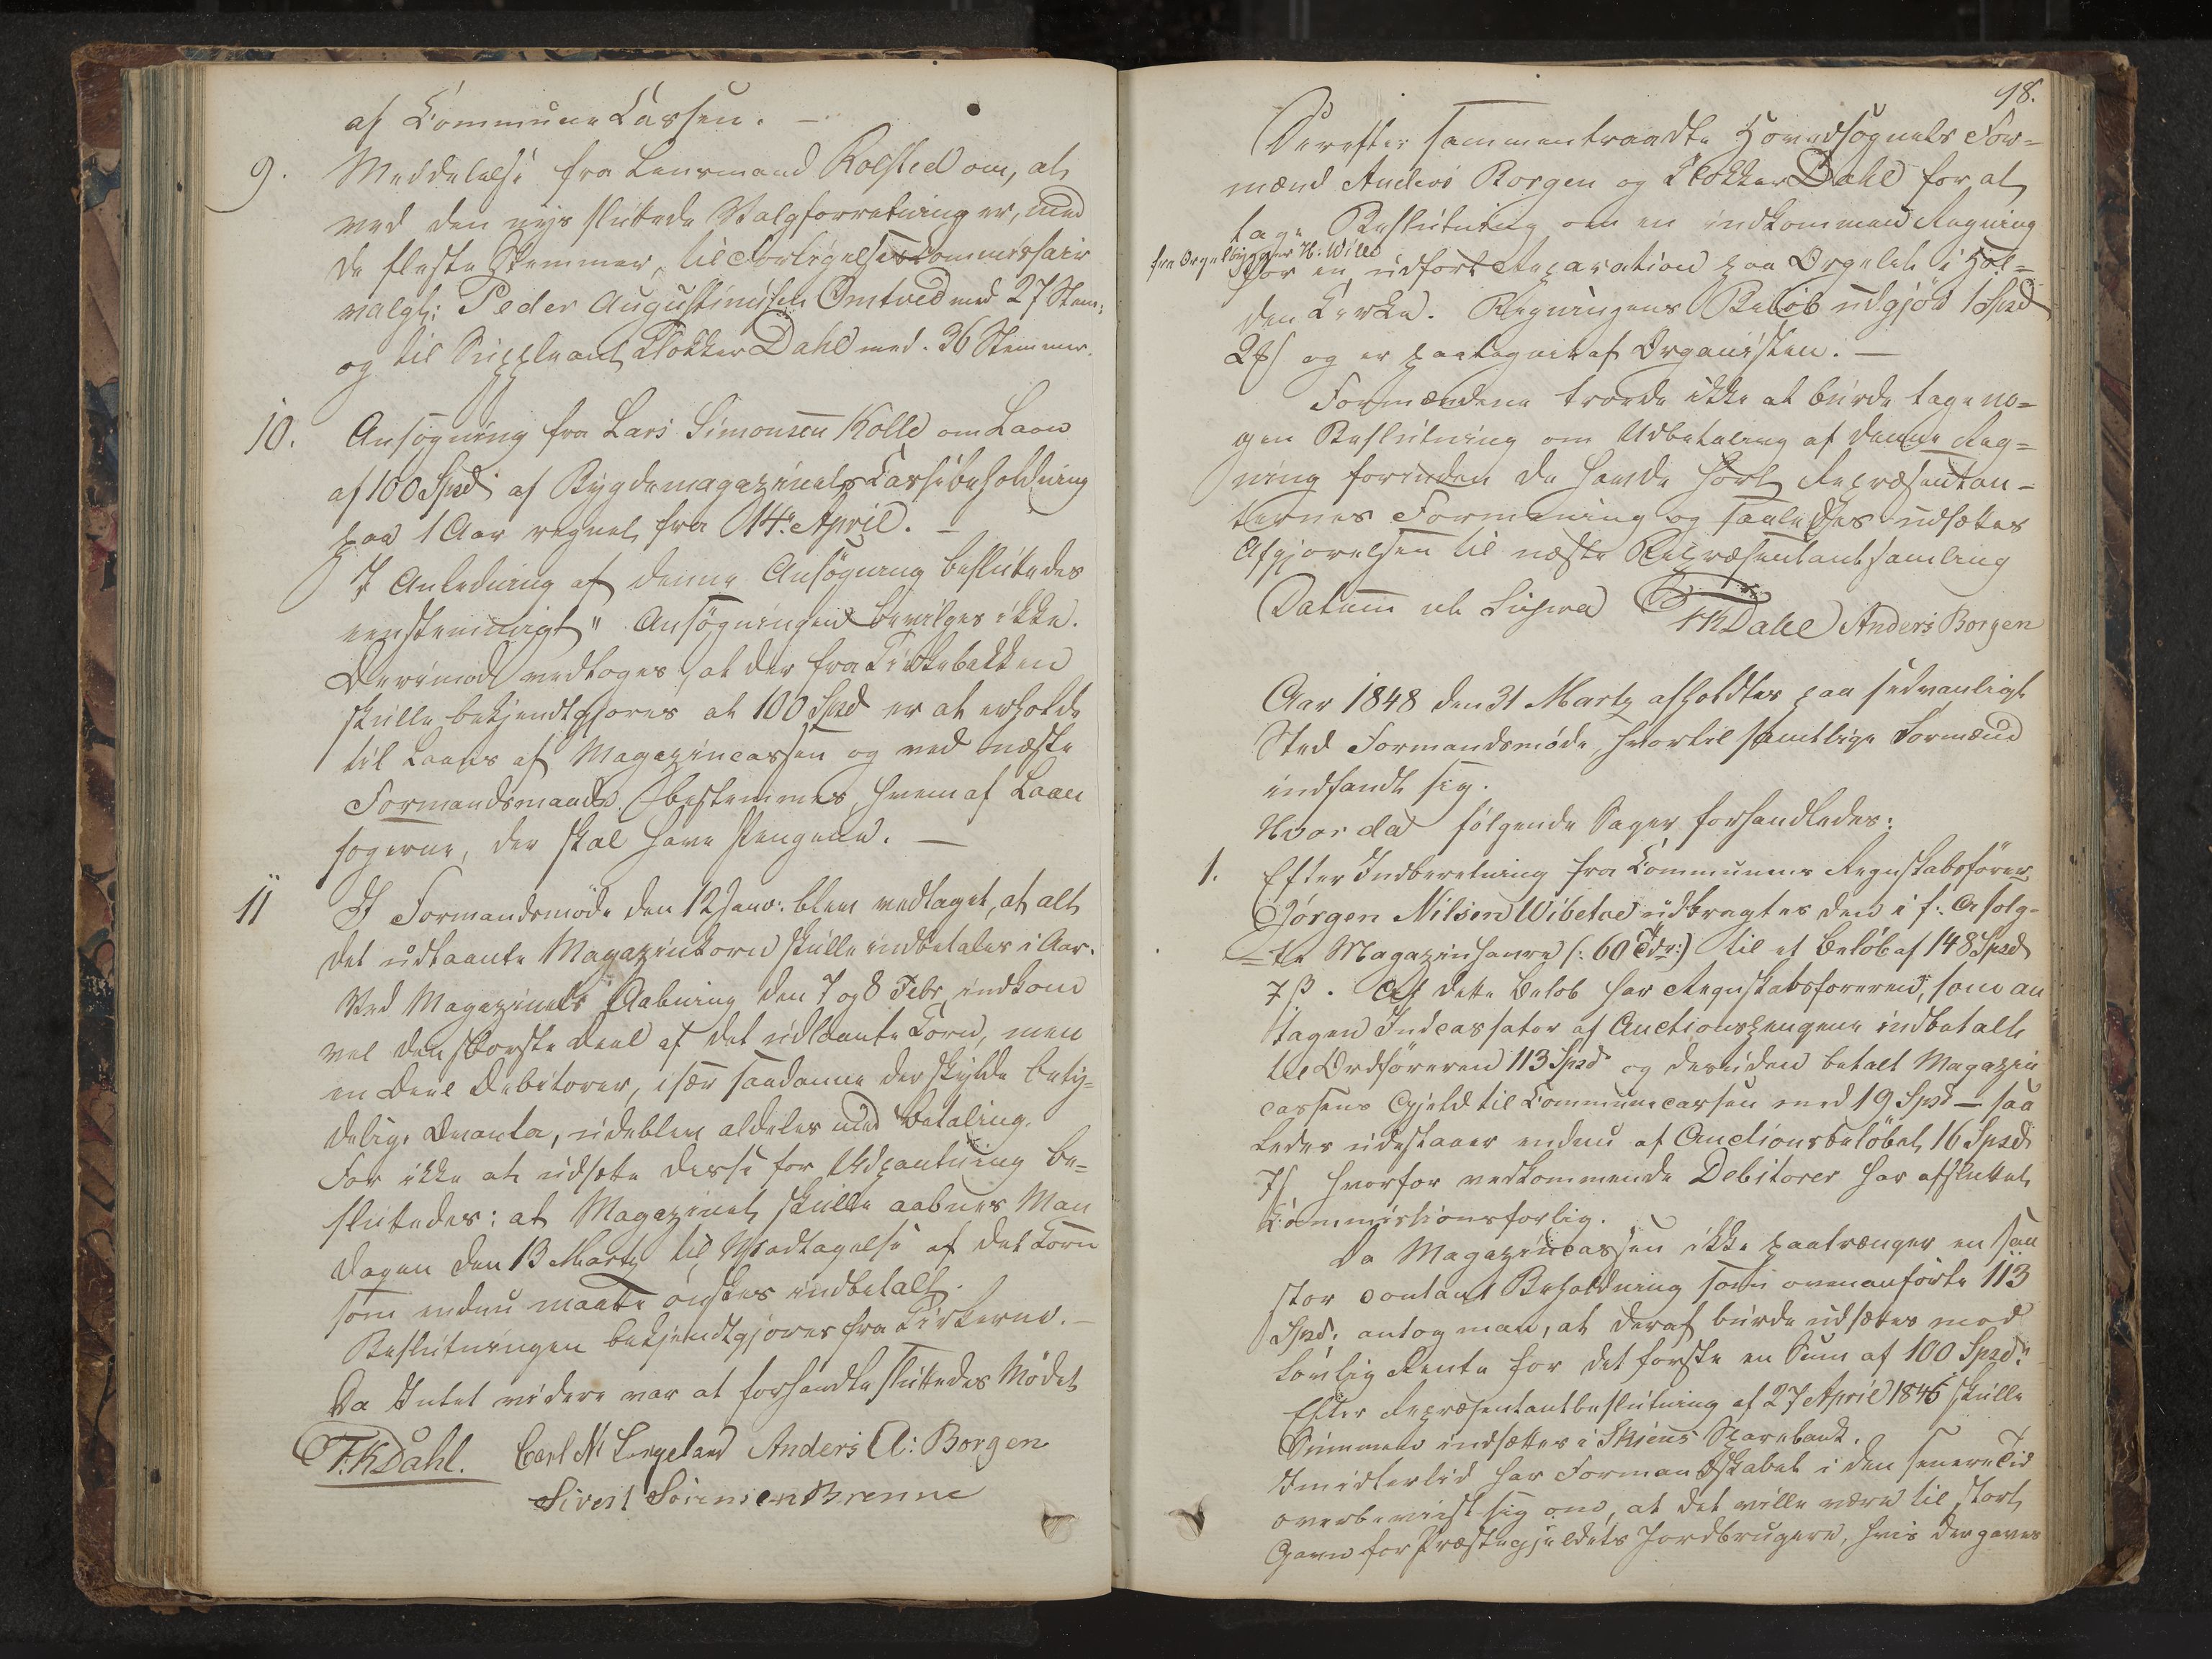 af Commune Cassen. —
9. Meddelelse fra Lensmand Rolsted om, at
ved den nys sluttede Valgforretning er, med
de fleste Stemmer, til Forligelsescommissair
valgt: Peder Augustinusen Omtved med 27 Stem:
og til Suppleant Klokker Dahl med 36 Stemmer.
10. Ansøgning fra Lars Simonsen Kolle om Laan
af 100 Spd af Bygdemagazinets Cassebeholdning
paa 1 Aar regnet fra 14. April. —
I Anledning af denne Ansøgning besluttedes
eenstemmigt "Ansøgningen bevilges ikke.
Derimod vedtoges, at der fra Kirkebakken
skulle bekjendtgjøres at 100 Spd er at erholde
til Laans af Magazincassen og ved næste
Formandsmøde bestemmes, hvem af Laan
søgerne, der skal have Pengene. —
11 I Formandsmøde den 12 Janv: blev vedtaget, at alt
det udlaante Magazinkorn skulle indbetales i Aar.
Ved Magazinets Aabning den 7 og 8 Febr indkom
vel den største Deel af det udlaante Korn, men
en Deel Debitorer, især saadanne der skylde bety-
delige Qvanta, udebleve aldeles med Betaling.
For ikke at udsætte disse for Udpantning be-
sluttedes: at Magazinet skulle aabnes Man
dagen den 13 Martz til Modtagelse af det Korn
som endnu maatte ønskes indbetalt.
Beslutningen bekjendtgjøres fra Kirkerne. —
Da Intet videre var at forhandle sluttedes Mødet
T. K Dahl. Carl N: Langeland Anders A: Borgen
Sivert Sørensen Brenne
18.
Derefter sammentraadte Hovedsognets For-
mænd Anders Borgen og Klokker Dahl for at
tage Beslutning om en indkommen Regning
fra Orgelbygger N: Wille
for en udført Reparation paa Orgelet i Hol-
den Kirke. Regningens Beløb udgjør 1 Spd
2 ß og er paategnet af Organisten. —
Formændene troede ikke at burde tage no-
gen Beslutning om Udbetaling af denne Reg-
ning forinden de havde hørt Repræsentan-
ternes Formening og saaledes udsættes
Afgjørelsen til næste Repræsentantsamling
Datum ut Supra TKDahl Anders Borgen
Aar 1848 den 31 Martz afholdtes paa sedvanligt
Sted Formandsmøde, hvortil samtlige Formænd
indfandt sig.
Hvor da følgende Sager forhandledes:
1. Efter Indberetning fra Communens Regnskabsfører
Jørgen Nilsen Wibetoe udbragtes den i f: A solg-
te Magazinhavre (: 60 Tdr:) til et Beløb af 148 Spd
7 ß. Af dette Beløb har Regnskabsføreren, som an
tagen Indcassator af Auctionspengene indbetalt
til Ordføreren 113 Spd og desuden betalt Magazin
cassens Gjeld til Communecassen med 19 Spd — saa
ledes udestaaer endnu af Auctionsbeløbet 16 Spd
7 ß hvorfor vedkommende Debitorer har afsluttet
Commissionsforlig.
Da Magazincassen ikke paatrænger en saa
stor contant Beholdning som ovenanførte 113
Spd. antog man, at deraf burde udsættes mod
lovlig Rente for det første en Sum af 100 Spd:
Efter Repræsentantbeslutning af 27 April 1846 skulle
Summen indsættes i Skiens Sparebank.
Imidlertid har Formandskabet i den senere Tid
overbeviist sig om, at det ville være til stort
Gavn for Præstegjeldets Jordbrugere, hvis der gaves